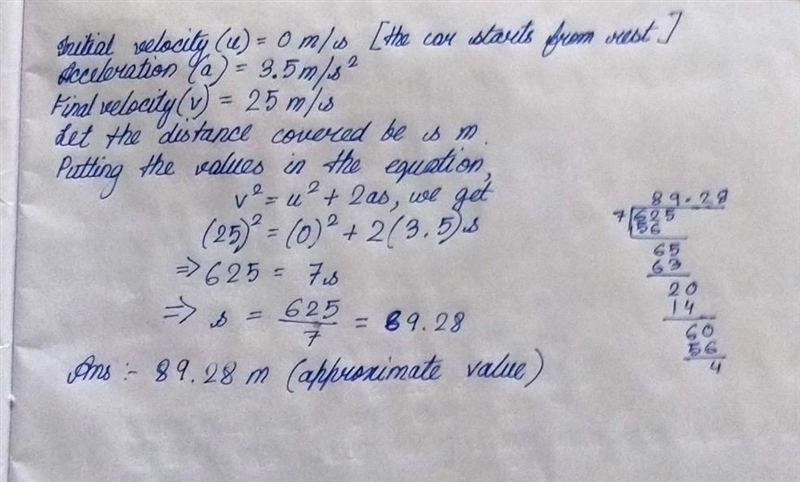 Initial velocity (u) = 0 m/s [the car starts from rest.]
Acceleration (a) = 3.5 m/s²
Final velocity (v) = 25 m/s
Let the distance covered be s m.
Putting the values in the equation,
v² = u² + 2as, we get
(25)² = (0)² + 2(3.5)s
⇒ 625 = 7s
⇒ s = 625/7 = 89.28
Ans :- 89.28 m (approximate value)
89.28
7 625
56
65
63
20
14
60
56
4